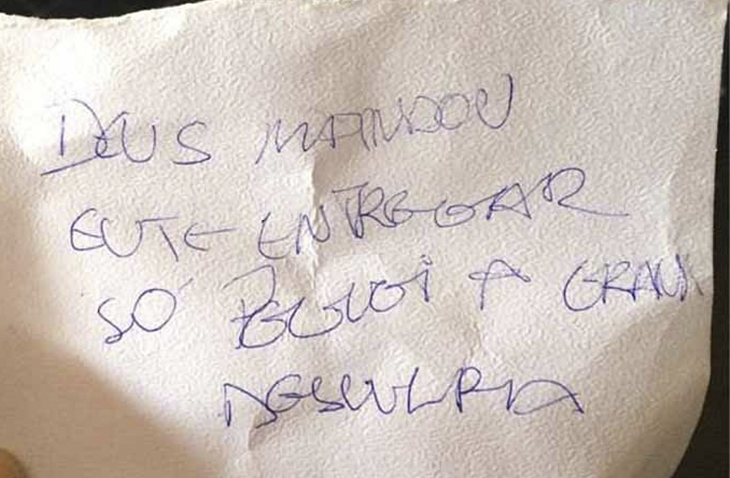 DEUS MANDOU
EUTE ENTREGAR
SÓ PEGUEI A GRANA
DESCULPA